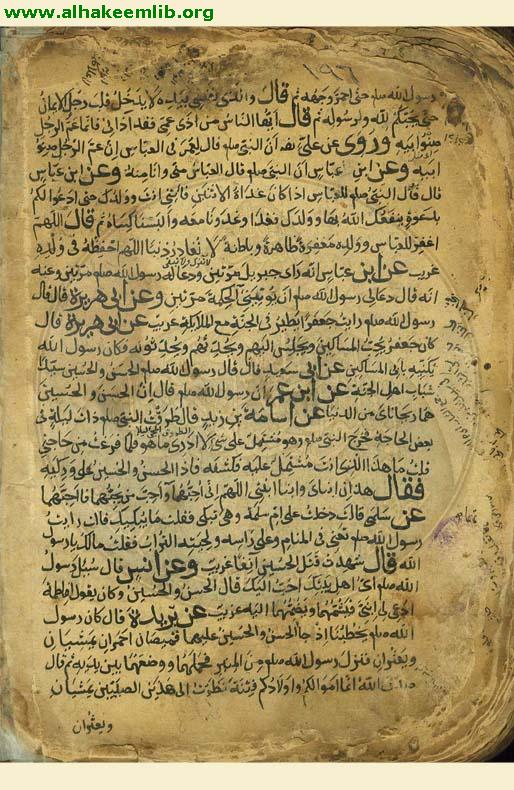 www.alhakeemlib.org
١٩٦
رسول الله صلم حتى احمر وجهه ثم قال والذى نفسى بيده لا يدخل قلب رجل الايمان
حتى يحبكم لله ولرسوله ثم قال ايها الناس من اذى عمى فقد اذانى فانما عم الرجل
صنو ابيه وروى عن على رفه ان النبى صلم قال لعمر فى العباس ان عم الرجل صنو
ابيه وعن ابن عباس ان النبى صلم قال العباس منى وانا منه وعن ابن عباس
قال قال النبى صلم للعباس اذا كان غداة الاثنين فأتنى انت وولدك حتى ادعوا لكم
بدعوة ينفعك الله بها وولدك فغدا وغدونا معه والبسنا كساه ثم قال اللهم
اغفر للعباس وولده مغفرة ظاهرة وباطنة لا تغادر ذنبا اللهم احفظه فى ولده
غريب عن ابن عباس انه راى جبريل مرتين ودعا له رسول الله صلم مرتين وعنه
انه قال دعا لى رسول الله صلم ان يوتينى الحكمة مرتين وعن ابى هريرة قال قال
رسول الله صلم رايت جعفرا يطير فى الجنة مع الملايكة غريب عن ابى هريرة قال
كان جعفر يحب المساكين ويجلس اليهم ويحدثهم ويحدثونه فكان رسول الله
يكنيه بابى المساكين عن ابى سعيد قال قال رسول الله صلم الحسن والحسين سيدا
شباب اهل الجنة عن ابن عمر ان رسول الله صلم قال ان الحسن والحسين
هما ريحاناى من الدنيا عن اسامة بن زيد قال طرقت النبى صلم ذات ليلة فى
بعض الحاجة فخرج النبى صلم وهو مشتمل على شى لا ادرى ما هو فلما فرغت من حاجتى
قلت ما هذا الذى انت مشتمل عليه فكشفه فاذا الحسن والحسين على وركيه
فقال هذان ابناى وابنا ابنتى اللهم انى احبهما فاحبهما واحب من يحبهما
عن سلمى قالت دخلت على ام سلمة وهى تبكى فقلت ما يبكيك قالت رايت
رسول الله صلم تعنى فى المنام وعلى راسه ولحيته التراب فقلت مالك يا رسول
الله قال شهدت قتل الحسين انفا غريب وعن انس قال سئل رسول
الله صلم اى اهل بيتك احب اليك قال الحسن والحسين وكان يقول لفاطمة
ادعى لى ابنى فيشمهما ويضمهما اليه غريب عن بريدة قال كان رسول
الله صلم يخطبنا اذ جا الحسن والحسين عليهما قميصان احمران يمشيان
ويعثران فنزل رسول الله صلم من المنبر فحملهما ووضعهما بين يديه ثم قال
صدق الله انما اموالكم واولادكم فتنة نظرت الى هذين الصبيين يمشيان
ويعثران